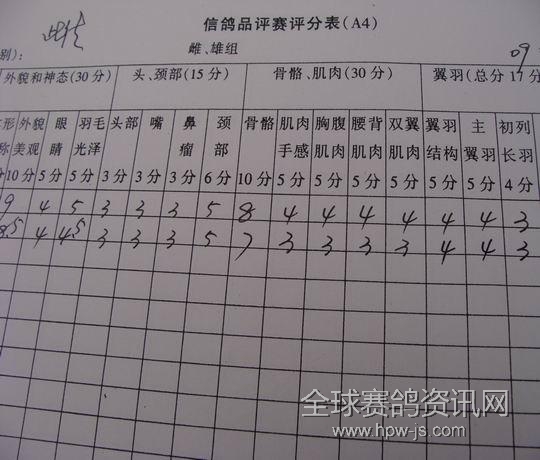 信鸽品评赛评分表(A4)
别): 雌、雄组 09
外貌和神态(30分) 头、颈部(15分) 骨骼、肌肉(30分) 翼羽(总分17分
形 外貌 眼 羽毛 头部 嘴 鼻 颈 骨骼 肌肉 胸腹 腰背 双翼 翼羽 主 初列
称 美观 睛 光泽 瘤 部 手感 肌肉 肌肉 肌肉 结构 翼羽 长羽
10分 5分 5分 5分 3分 3分 3分 6分 10分 5分 5分 5分 5分 5分 5分 4分
9 4 5 3 3 3 5 8 4 4 4 4 4 4 3
8.5 4 4.5 3 3 3 5 7 3 3 3 3 4 4 3
全球赛鸽资讯网
www.hpw-js.com